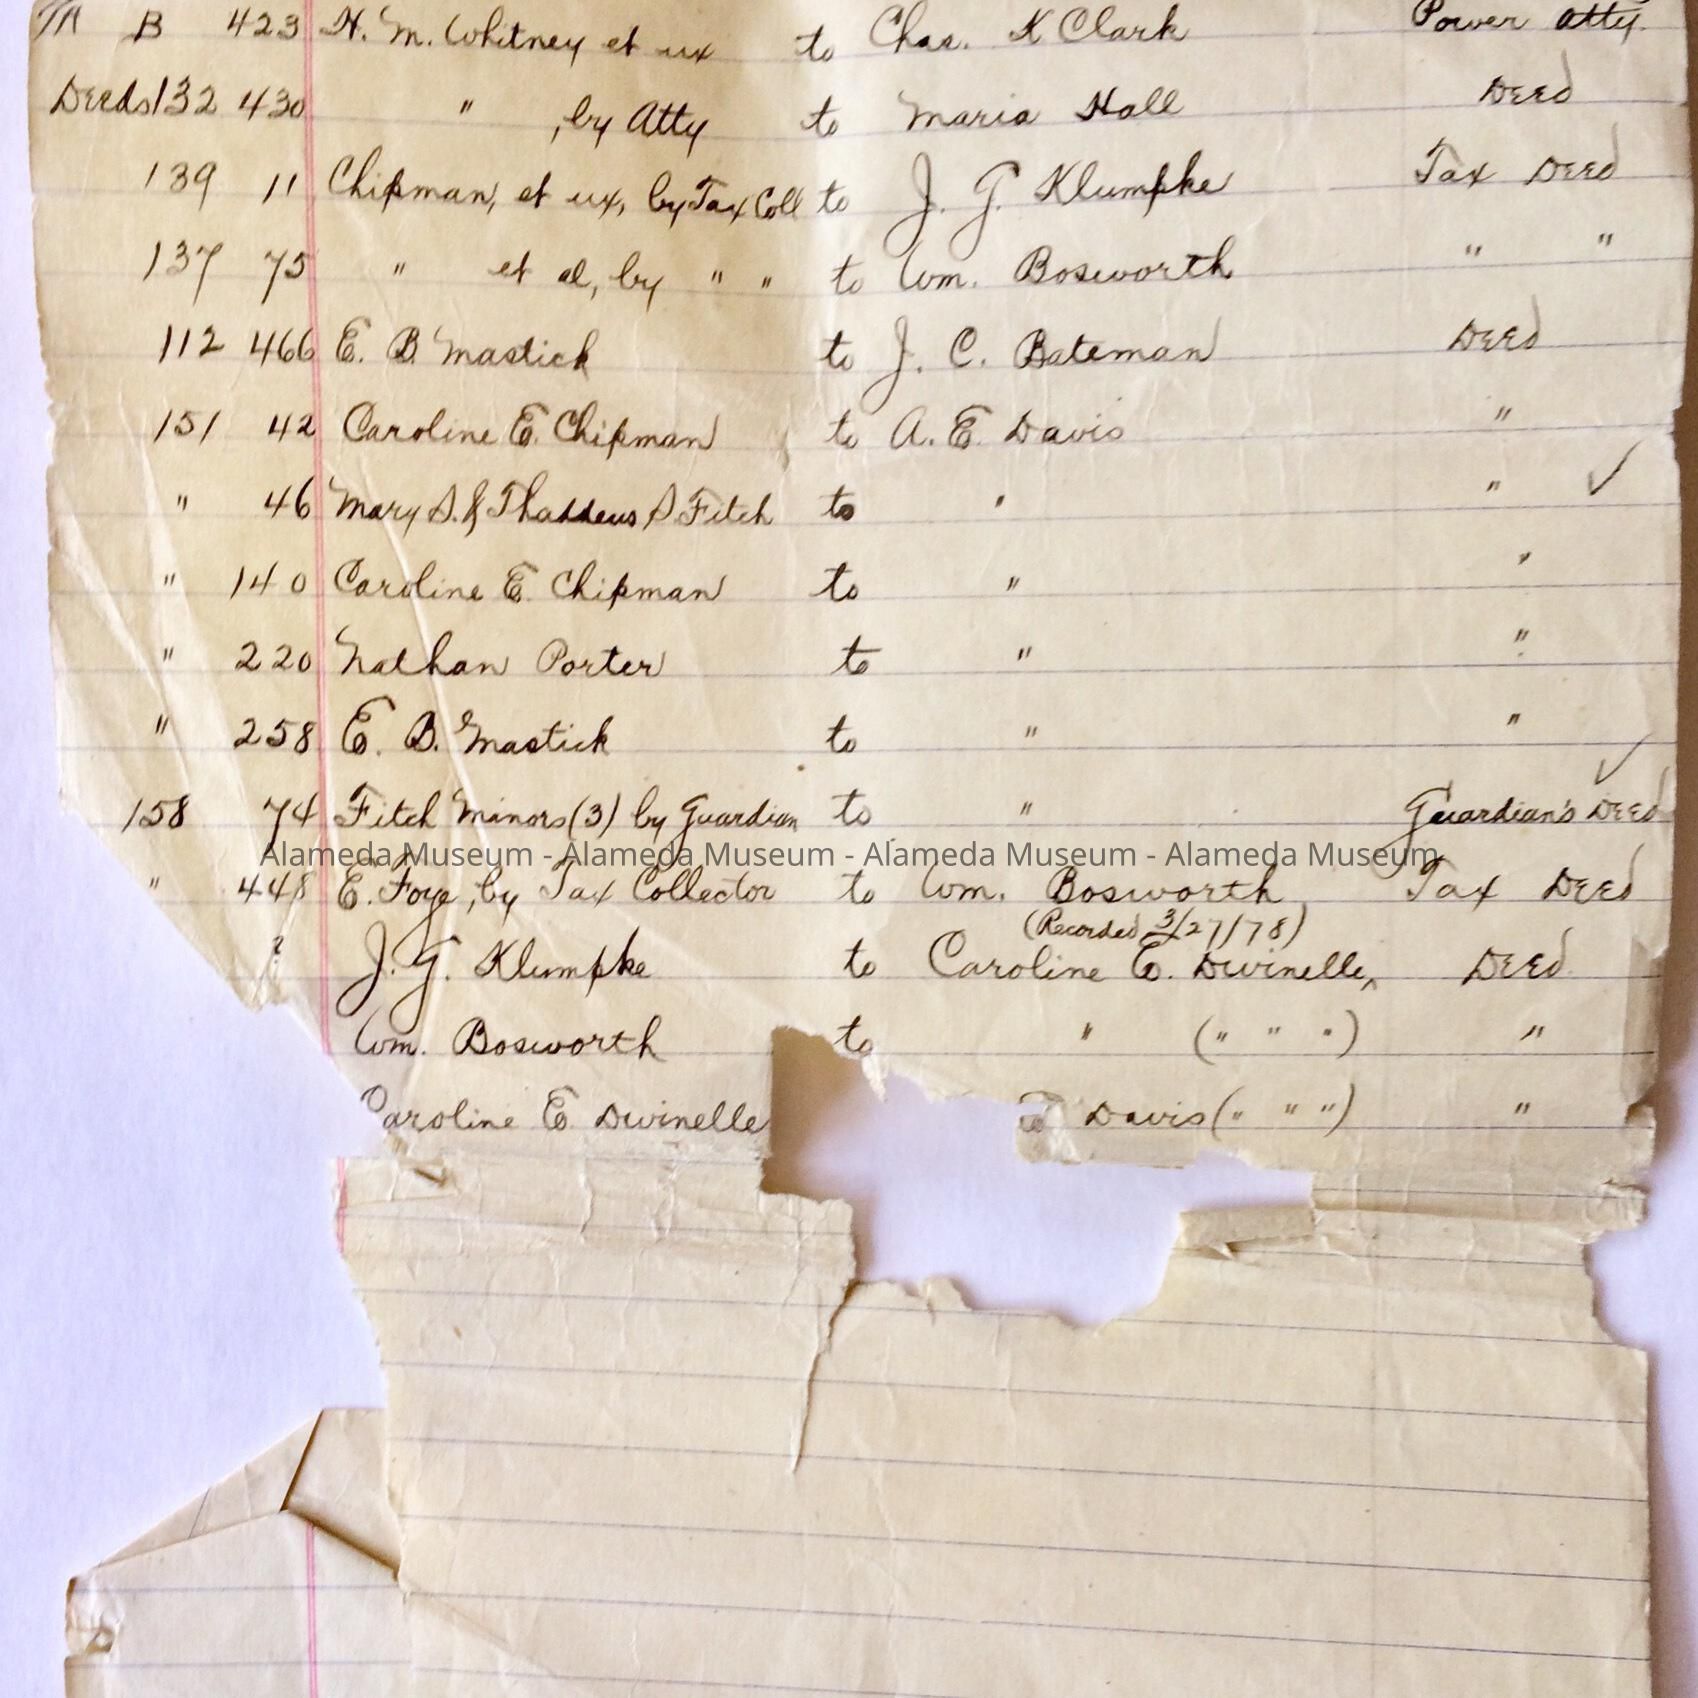 B 423 H. M. Whitney et ux to Chas. K Clark Power Atty.
Deeds 132 430 " , by Atty to Maria Hall Deed
139 11 Chipman, et ux, by Tax Coll to J. G. Klumpke Tax Deed
137 75 " et al, by " " to Wm. Bosworth " "
112 466 E. B. Mastick to J. C. Bateman Deed
151 42 Caroline E. Chipman to A. E. Davis "
" 46 Mary S. & Thaddeus S Fitch to " " ✓
" 140 Caroline E. Chipman to " "
" 220 Nathan Porter to " "
" 258 E. B. Mastick to " "
158 74 Fitch Minors (3) by Guardian to " Guardian's Deed ✓
Alameda Museum - Alameda Museum - Alameda Museum - Alameda Museum
" 448 E. Foye, by Tax Collector to Wm. Bosworth Tax Deed
(Recorded 3/27/78)
? J. G. Klumpke to Caroline E. Dwinelle, Deed
Wm. Bosworth to " (" " ") "
Caroline E. Dwinelle E Davis (" " ") "